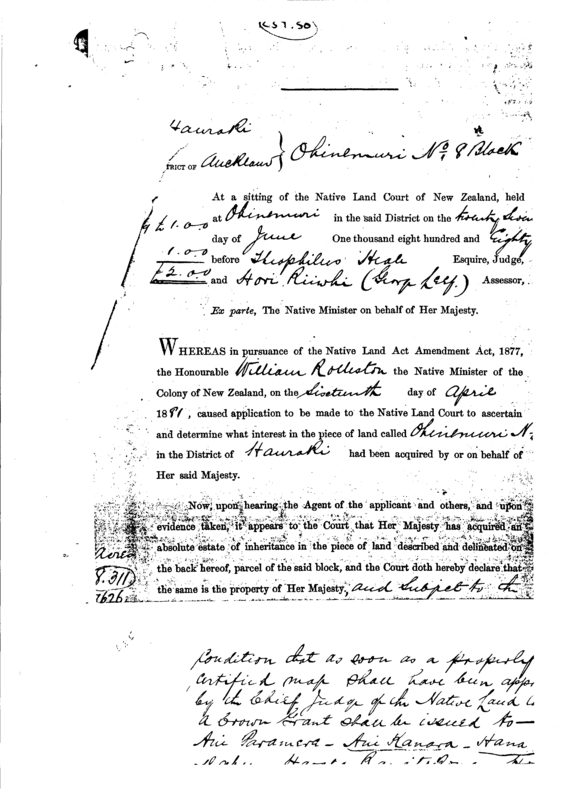 Hauraki
TRICT OF Auckland } Ohinemuri No. 8 Block
At a sitting of the Native Land Court of New Zealand, held
£1.0.0 at Ohinemuri in the said District on the twenty
day of June One thousand eight hundred and Eighty
1.0.0 before Theophilus Heale Esquire, Judge,
£2.0.0 and Hori Riiwhi (George Self.) Assessor,
Ex parte, The Native Minister on behalf of Her Majesty.
WHEREAS in pursuance of the Native Land Act Amendment Act, 1877,
the Honourable William Rolleston the Native Minister of the
Colony of New Zealand, on the Sixteenth day of April
1881, caused application to be made to the Native Land Court to ascertain
and determine what interest in the piece of land called Ohinemuri N
in the District of Hauraki had been acquired by or on behalf of
Her said Majesty.
Now, upon hearing the Agent of the applicant and others, and upon
evidence taken, it appears to the Court that Her Majesty has acquired an
absolute estate of inheritance in the piece of land described and delineated on
the back hereof, parcel of the said block, and the Court doth hereby declare that
the same is the property of Her Majesty, and subject to the
Acres
8.311
7626
Condition that as soon as a properly
certified map shall have been appr
by the Chief Judge of the Native Land C
a Crown Grant shall be issued to —
Ani Paramera - Ani Kanara - Hana